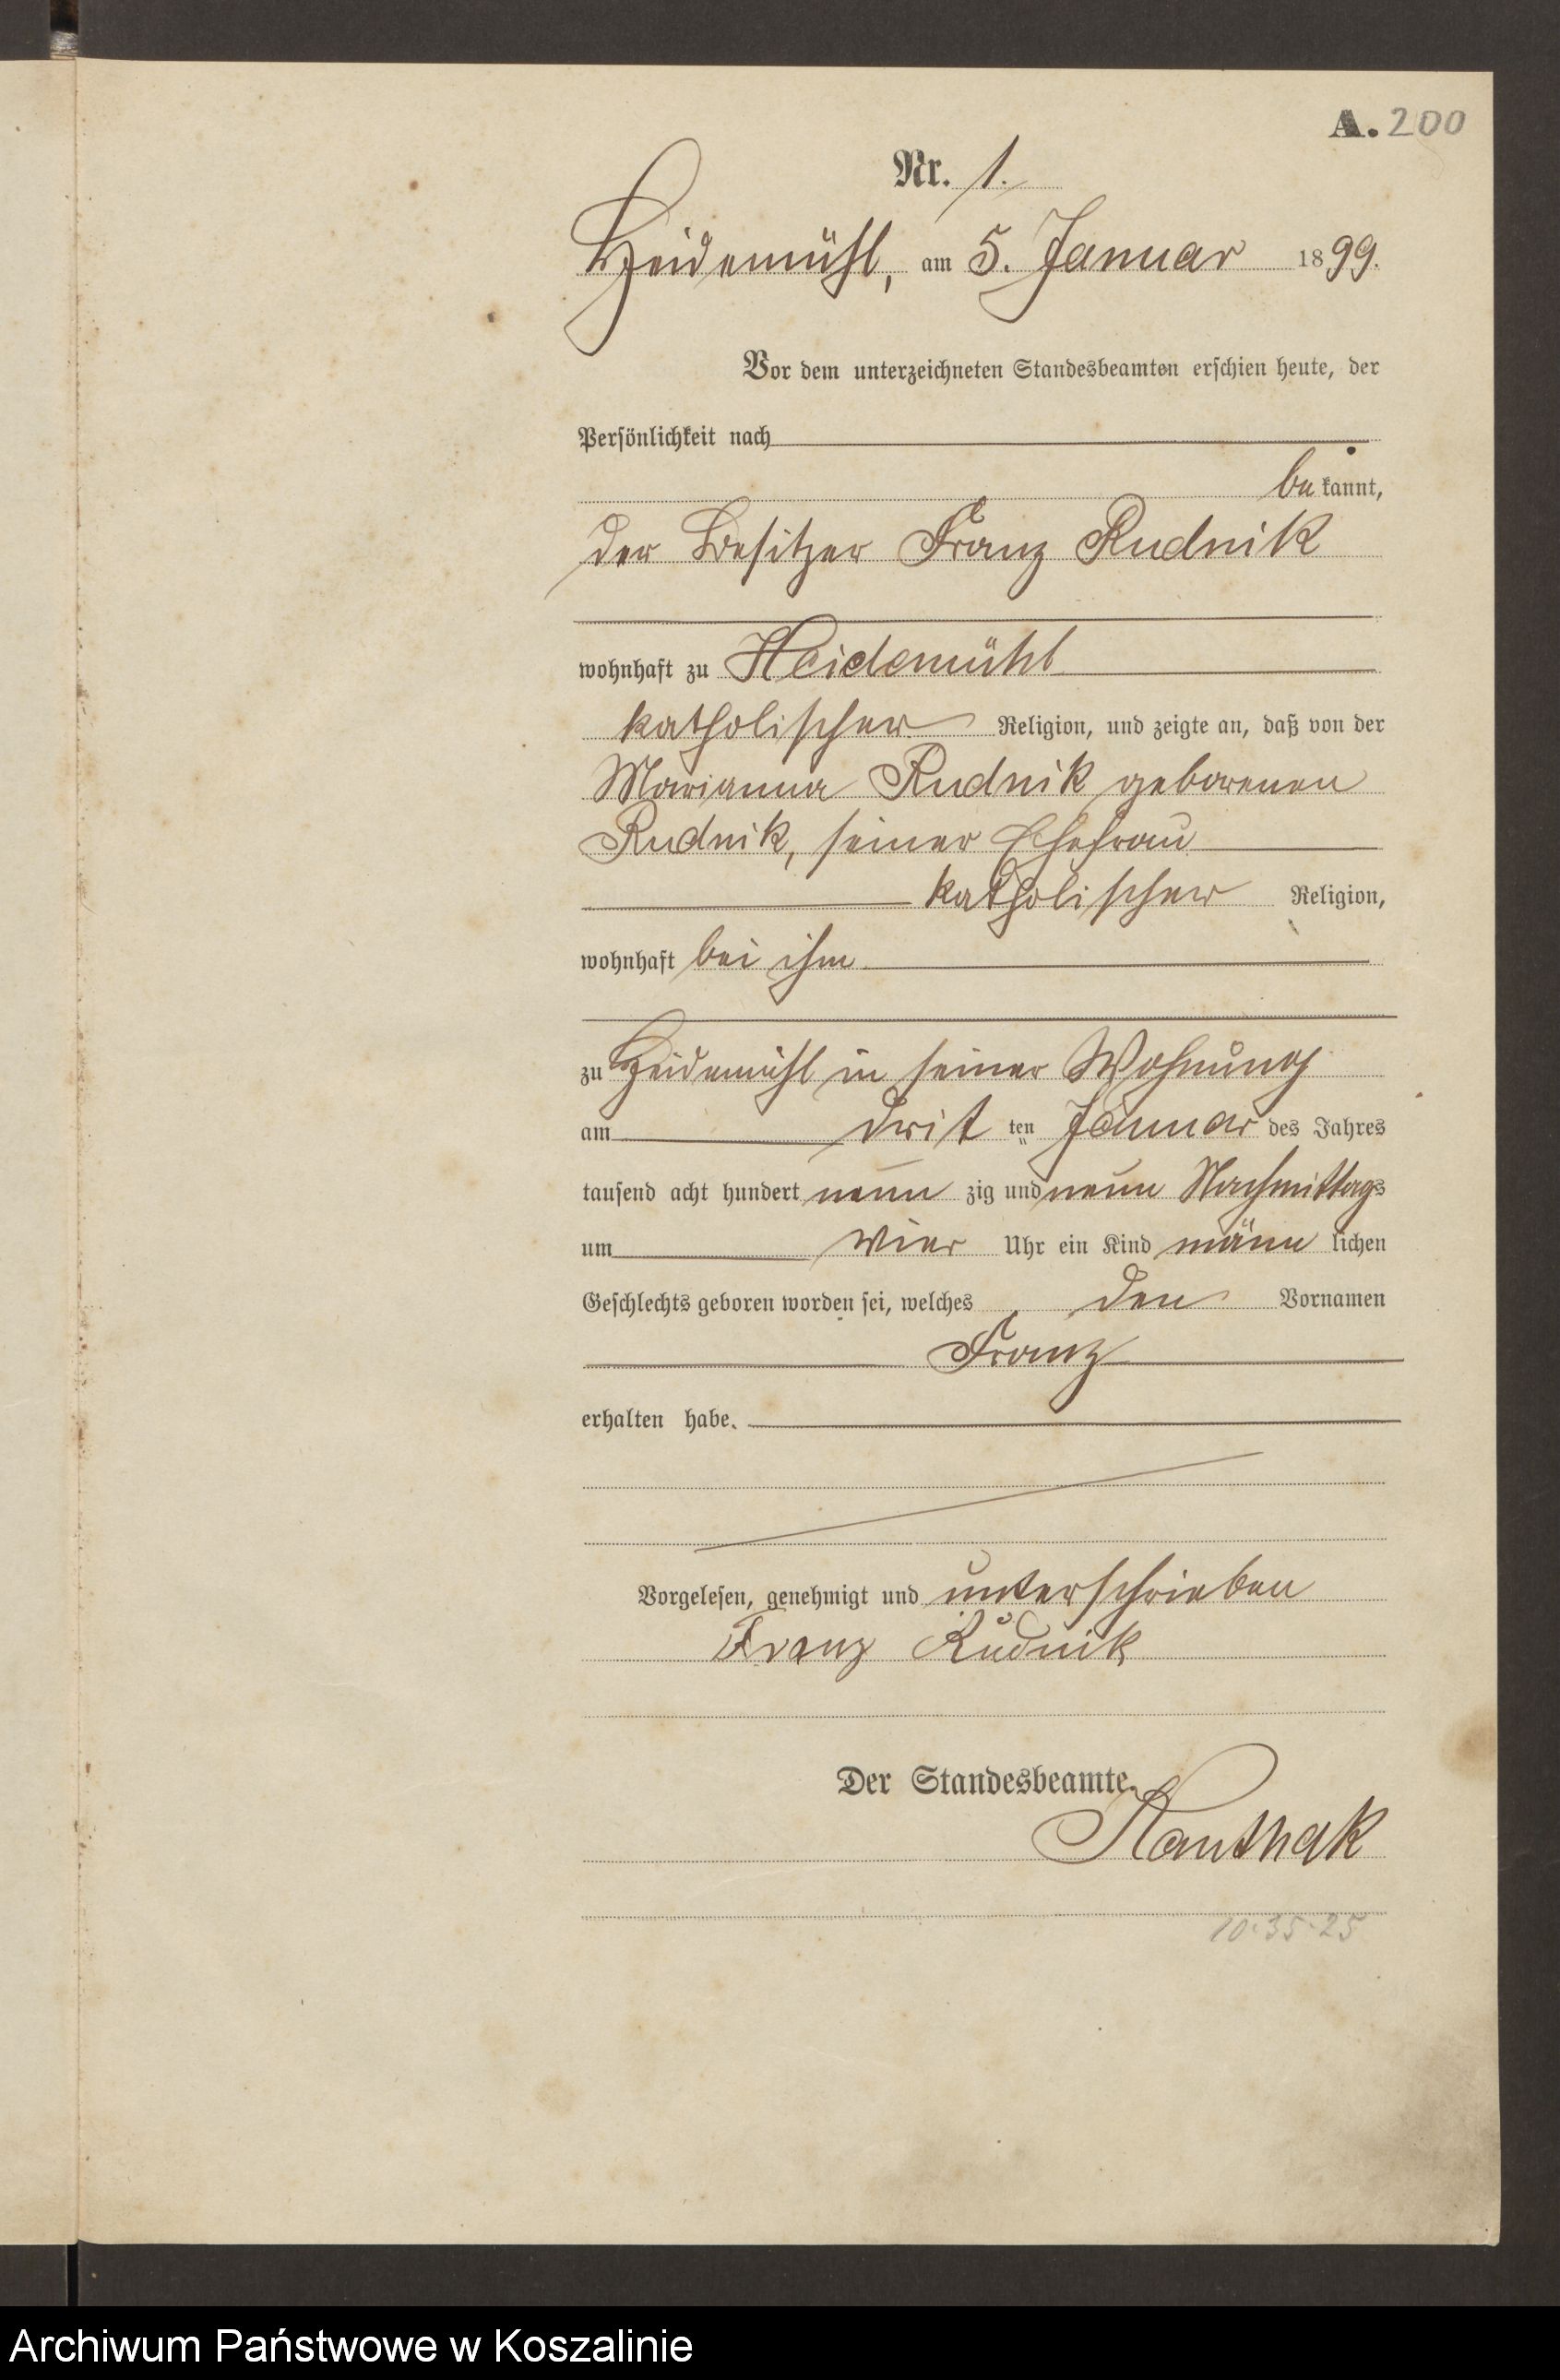 A. 200
Nr. 1.
Heidemühl, am 5. Januar 1899.
Vor dem unterzeichneten Standesbeamten erschien heute, der
Persönlichkeit nach
bekannt,
der Besitzer Franz Rudnik
wohnhaft zu Heidemühl
katholischer Religion, und zeigte an, daß von der
Marianna Rudnik geborenen
Rudnik, seiner Ehefrau
katholischer Religion,
wohnhaft bei ihm
zu Heidemühl in seiner Wohnung
am dritten Januar des Jahres
tausend acht hundert neunzig und neun Nachmittags
um vier Uhr ein Kind männlichen
Geschlechts geboren worden sei, welches den Vornamen
Franz
erhalten habe.
Vorgelesen, genehmigt und unterschrieben
Franz Rudnik
Der Standesbeamte.
10·35·25
Archiwum Państwowe w Koszalinie